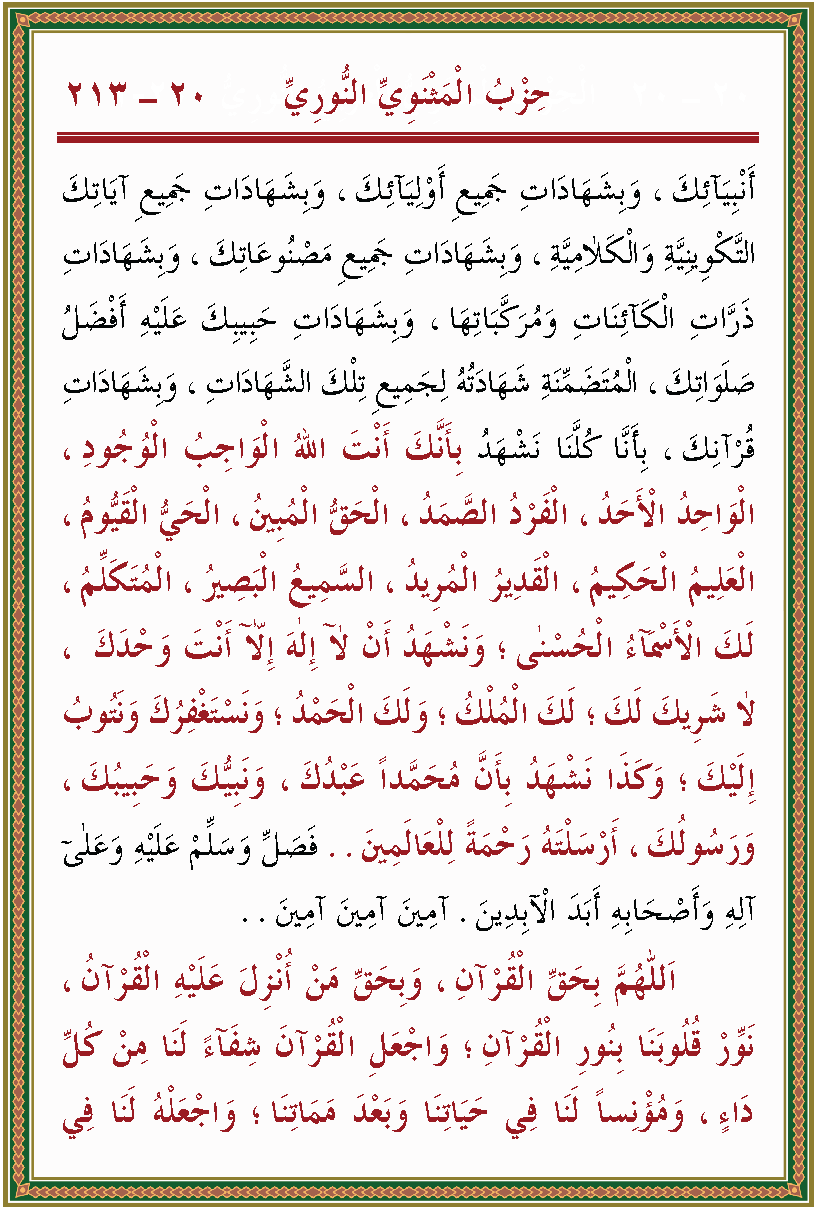 حِزْبُ الْمَثْنَوِيِّ النُّورِيِّ ٢٠ – ٢١٣
أَنْبِيَآئِكَ ، وَبِشَهَادَاتِ جَمِيعِ أَوْلِيَآئِكَ ، وَبِشَهَادَاتِ جَمِيعِ آيَاتِكَ
التَّكْوِينِيَّةِ وَالْكَلَامِيَّةِ ، وَبِشَهَادَاتِ جَمِيعِ مَصْنُوعَاتِكَ ، وَبِشَهَادَاتِ
ذَرَّاتِ الْكَآئِنَاتِ وَمُرَكَّبَاتِهَا ، وَبِشَهَادَاتِ حَبِيبِكَ عَلَيْهِ أَفْضَلُ
صَلَوَاتِكَ ، الْمُتَضَمِّنَةِ شَهَادَتُهُ لِجَمِيعِ تِلْكَ الشَّهَادَاتِ ، وَبِشَهَادَاتِ
قُرْآنِكَ ، بِأَنَّا كُلَّنَا نَشْهَدُ بِأَنَّكَ أَنْتَ اللهُ الْوَاجِبُ الْوُجُودِ ،
الْوَاحِدُ الْأَحَدُ ، الْفَرْدُ الصَّمَدُ ، الْحَقُّ الْمُبِينُ ، الْحَيُّ الْقَيُّومُ ،
الْعَلِيمُ الْحَكِيمُ ، الْقَدِيرُ الْمُرِيدُ ، السَّمِيعُ الْبَصِيرُ ، الْمُتَكَلِّمُ ،
لَكَ الْأَسْمَآءُ الْحُسْنٰى ؛ وَنَشْهَدُ أَنْ لَآ إِلٰهَ إِلَّآ أَنْتَ وَحْدَكَ ،
لَا شَرِيكَ لَكَ ؛ لَكَ الْمُلْكُ ؛ وَلَكَ الْحَمْدُ ؛ وَنَسْتَغْفِرُكَ وَنَتُوبُ
إِلَيْكَ ؛ وَكَذَا نَشْهَدُ بِأَنَّ مُحَمَّداً عَبْدُكَ ، وَنَبِيُّكَ وَحَبِيبُكَ ،
وَرَسُولُكَ ، أَرْسَلْتَهُ رَحْمَةً لِلْعَالَمِينَ . . فَصَلِّ وَسَلِّمْ عَلَيْهِ وَعَلٰىٓ
آلِهِ وَأَصْحَابِهِ أَبَدَ الْآبِدِينَ . آمِينَ آمِينَ آمِينَ . .
اَللّٰهُمَّ بِحَقِّ الْقُرْآنِ ، وَبِحَقِّ مَنْ أُنْزِلَ عَلَيْهِ الْقُرْآنُ ،
نَوِّرْ قُلُوبَنَا بِنُورِ الْقُرْآنِ ؛ وَاجْعَلِ الْقُرْآنَ شِفَآءً لَنَا مِنْ كُلِّ
دَاءٍ ، وَمُؤْنِساً لَنَا فِي حَيَاتِنَا وَبَعْدَ مَمَاتِنَا ؛ وَاجْعَلْهُ لَنَا فِي